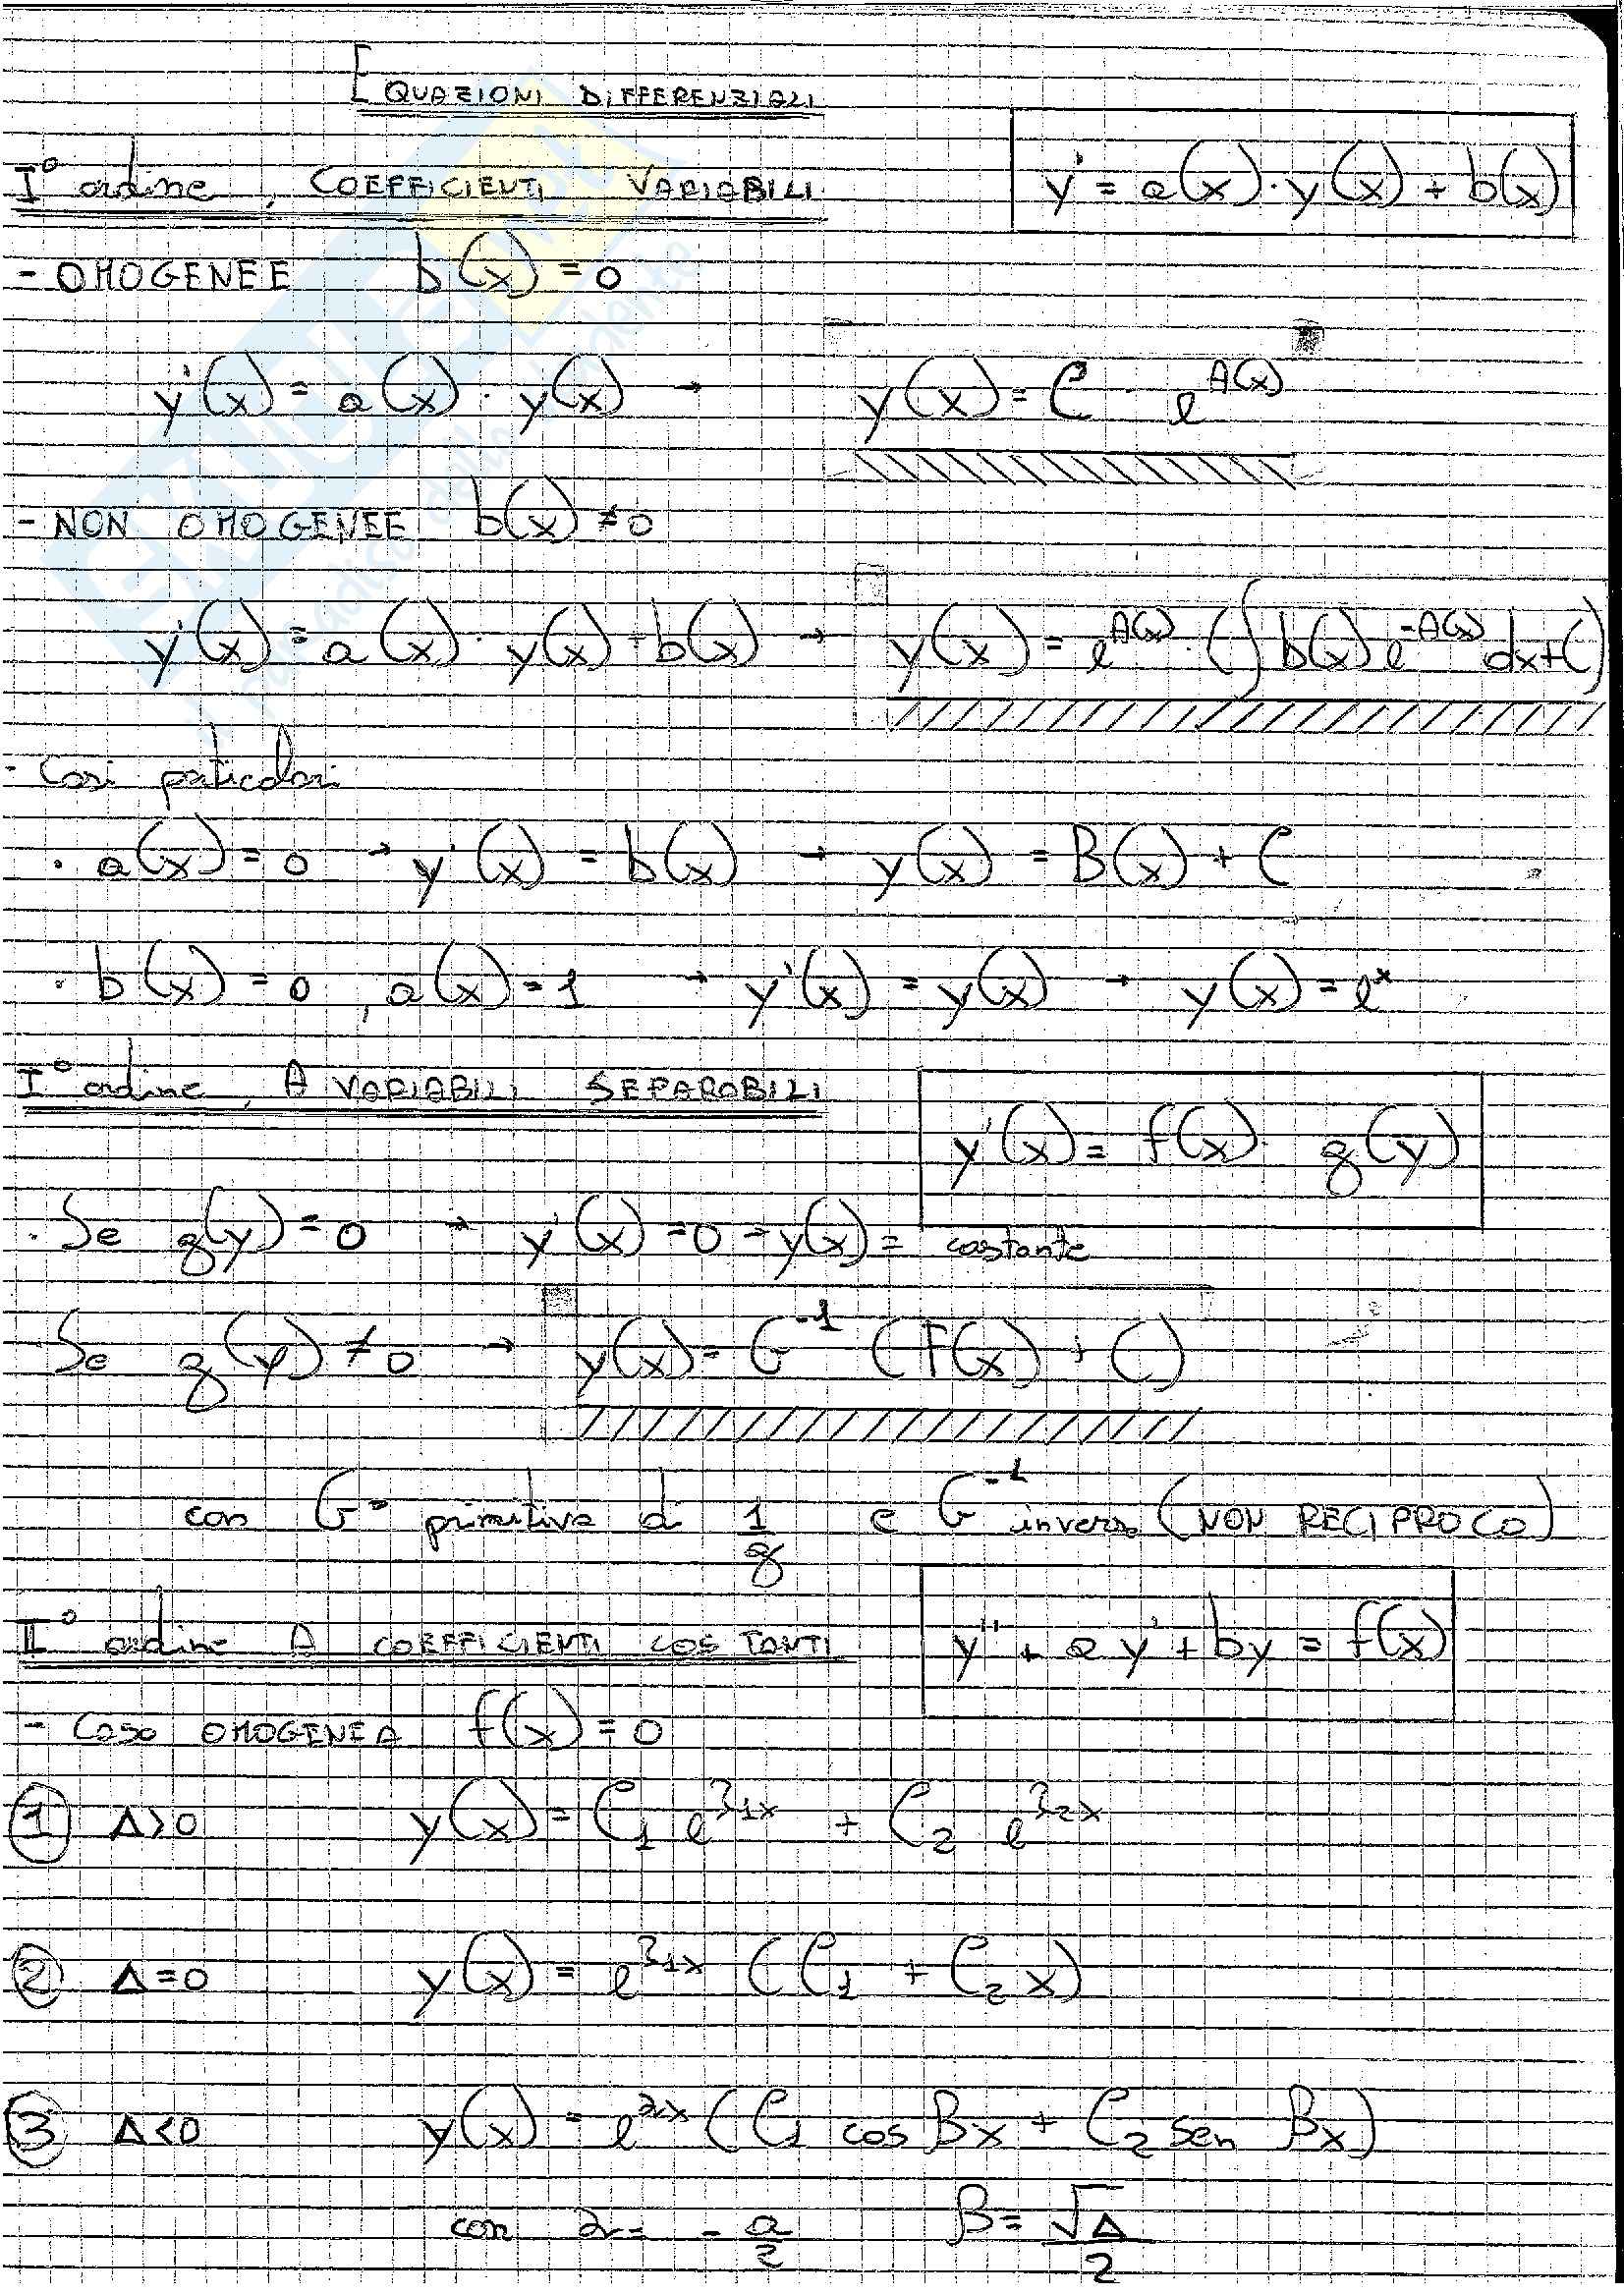 EQUAZIONI DIFFERENZIALI
I° ordine, COEFFICIENTI VARIABILI
y' = a(x)·y(x) + b(x)
- OMOGENEE b(x) = 0
y'(x) = a(x) · y(x) → y(x) = C · e^A(x)
- NON OMOGENEE b(x) ≠ 0
y'(x) = a(x) · y(x) + b(x) → y(x) = e^A(x) · (∫ b(x) e^-A(x) dx + C)
- Casi particolari
· a(x) = 0 → y'(x) = b(x) → y(x) = B(x) + C
· b(x) = 0, a(x) = 1 → y'(x) = y(x) → y(x) = e^x
I° ordine, A VARIABILI SEPARABILI
y'(x) = f(x) · g(y)
· Se g(y) = 0 → y'(x) = 0 → y(x) = costante
Se g(y) ≠ 0 → y(x) = G^-1 (F(x) + C)
con G = primitiva di 1/g e G^-1 inversa (NON RECIPROCO)
II° ordine A COEFFICIENTI COSTANTI
y'' + a y' + by = f(x)
- Caso OMOGENEA f(x) = 0
1 Δ>0 y(x) = C1 e^λ1x + C2 e^λ2x
2 Δ=0 y(x) = e^λ1x (C1 + C2 x)
3 Δ<0 y(x) = e^αx (C1 cos βx + C2 sen βx)
con α = - a/2 β = √Δ/2